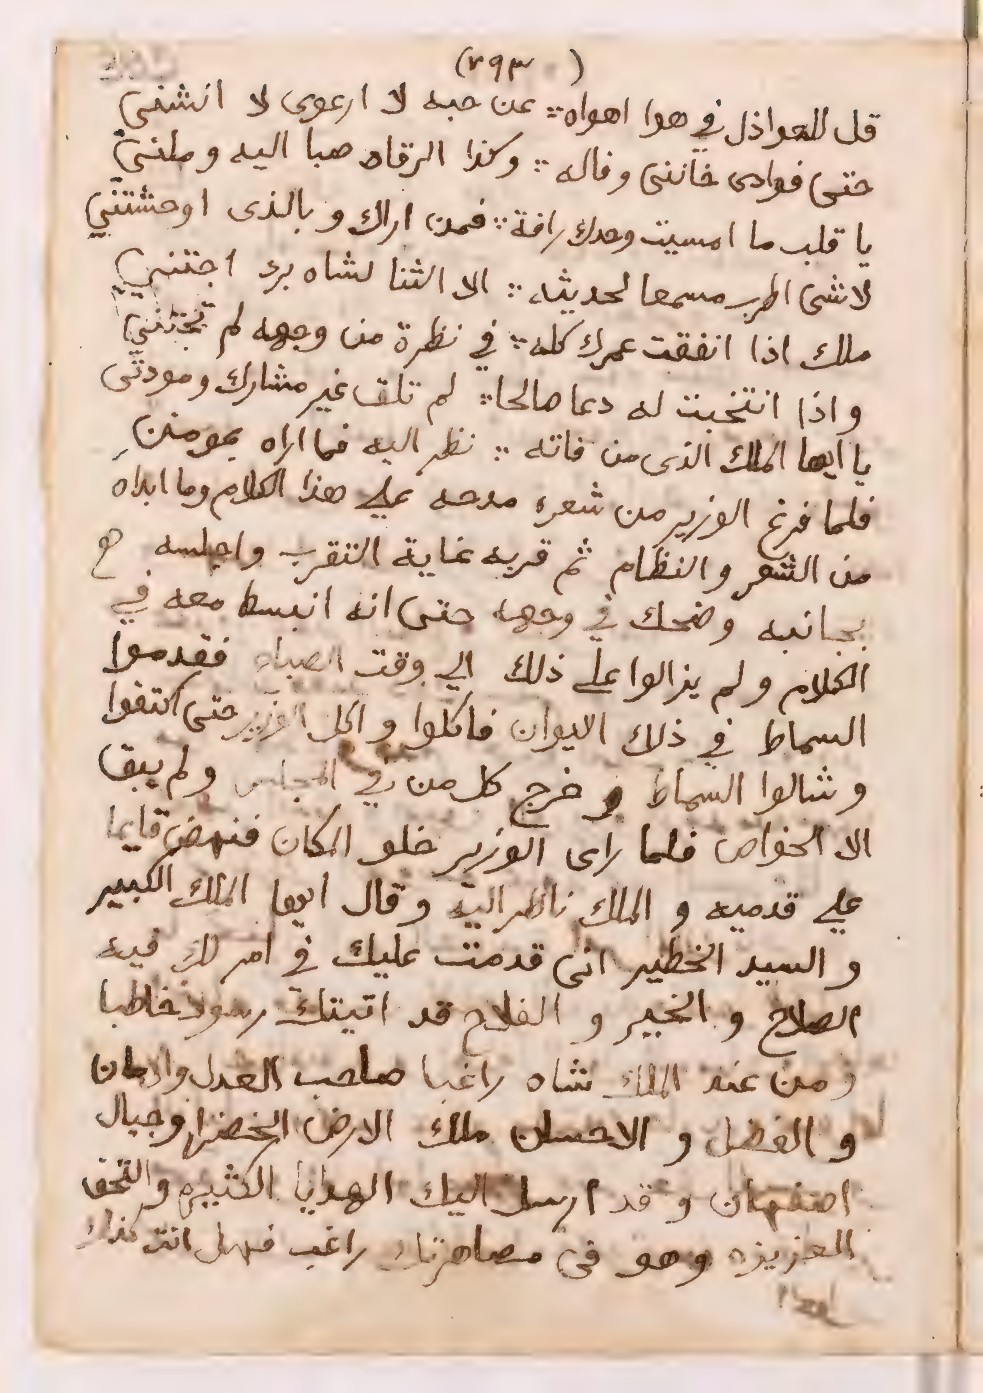 (٢٩٣)
قل للعواذل في هوا اهواه ∴ عن حبه لا ارعوى لا انشنى
حتى فوادى خاننى وفاله ∴ وكذا الرقاد صبا اليه وملنى
يا قلب ما امسيت وحدك رافة ∴ فمن اراك وبالذى اوحشتني
لا شى اطرب مسمعا لحديثه ∴ الا الثنا لشاه برد اجتني
ملك اذا انفقت عمرك كله ∴ في نظرة من وجهه لم
واذا انتخبت له دعا صالحا ∴ لم تلق غير مشارك ومودتى
يا ايها الملك الذى من فاته ∴ نظر اليه فما اراه بمومن
فلما فرغ الوزير من شعره مدحه علي هذا الكلام وما ابداه
من الشعر والنظام ثم قربه غاية التقرب واجلسه
بجانبه وضحك في وجهه حتى انه انبسط معه في
الكلام ولم يزالوا على ذلك الي وقت الصباح فقدموا
السماط في ذلك الايوان فاكلوا واكل الوزير حتى اكتفوا
وشالوا السماط وخرج كل من في المجلس ولم يبقا
الا الخواص فلما راى الوزير خلو المكان فنهض قايما
علي قدميه والملك ناظر اليه وقال ايها الملك الكبير
والسيد الخطير انى قدمت عليك في امر لك فيه
الصلاح والخير والفلاح قد اتيتك رسولا خاطبا
ومن عند الملك شاه راغبا صاحب العدل والامان
والفضل والاحسان ملك الارض الخضرا وجبال
اصفهان وقد ارسل اليك الهدايا الكثيره والتحف
العزيزه وهو فى مصاهرتك راغب فهل انت كذلك